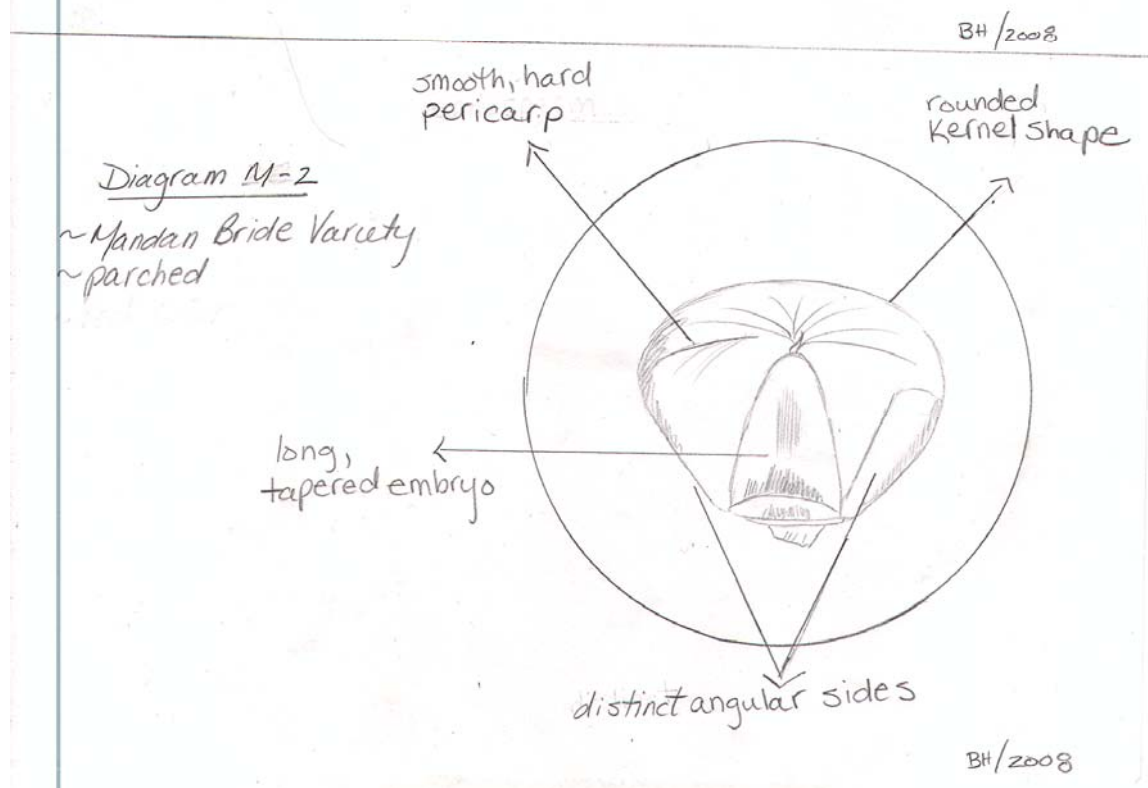 BH/2008
smooth, hard
pericarp
rounded
Kernel shape
Diagram M-2
~Mandan Bride Variety
~parched
long,
tapered embryo
distinct angular sides
BH/2008